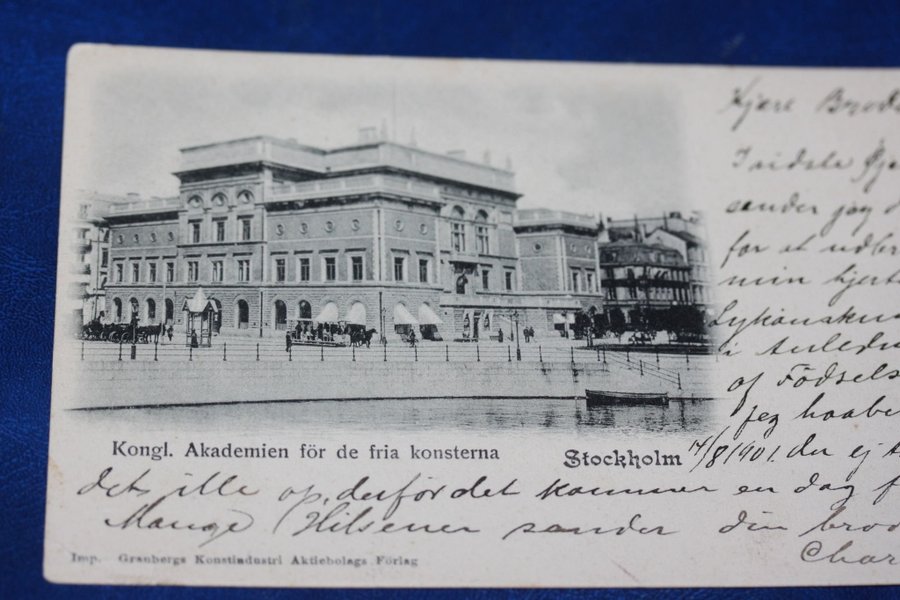 Kjære Brode
I sidste Øje
sender jeg
for at udbr
min hjerte
Lykønskn
i Anledn
af Fødsels
jeg haabe
Kongl. Akademien för de fria konsterna
Stockholm
14/8 1901. du ej
dets ille op, derfor det kommer en dag f
Mange Hilsener sender din brod
Char
Imp. Granbergs Konstindustri Aktiebolags Förlag